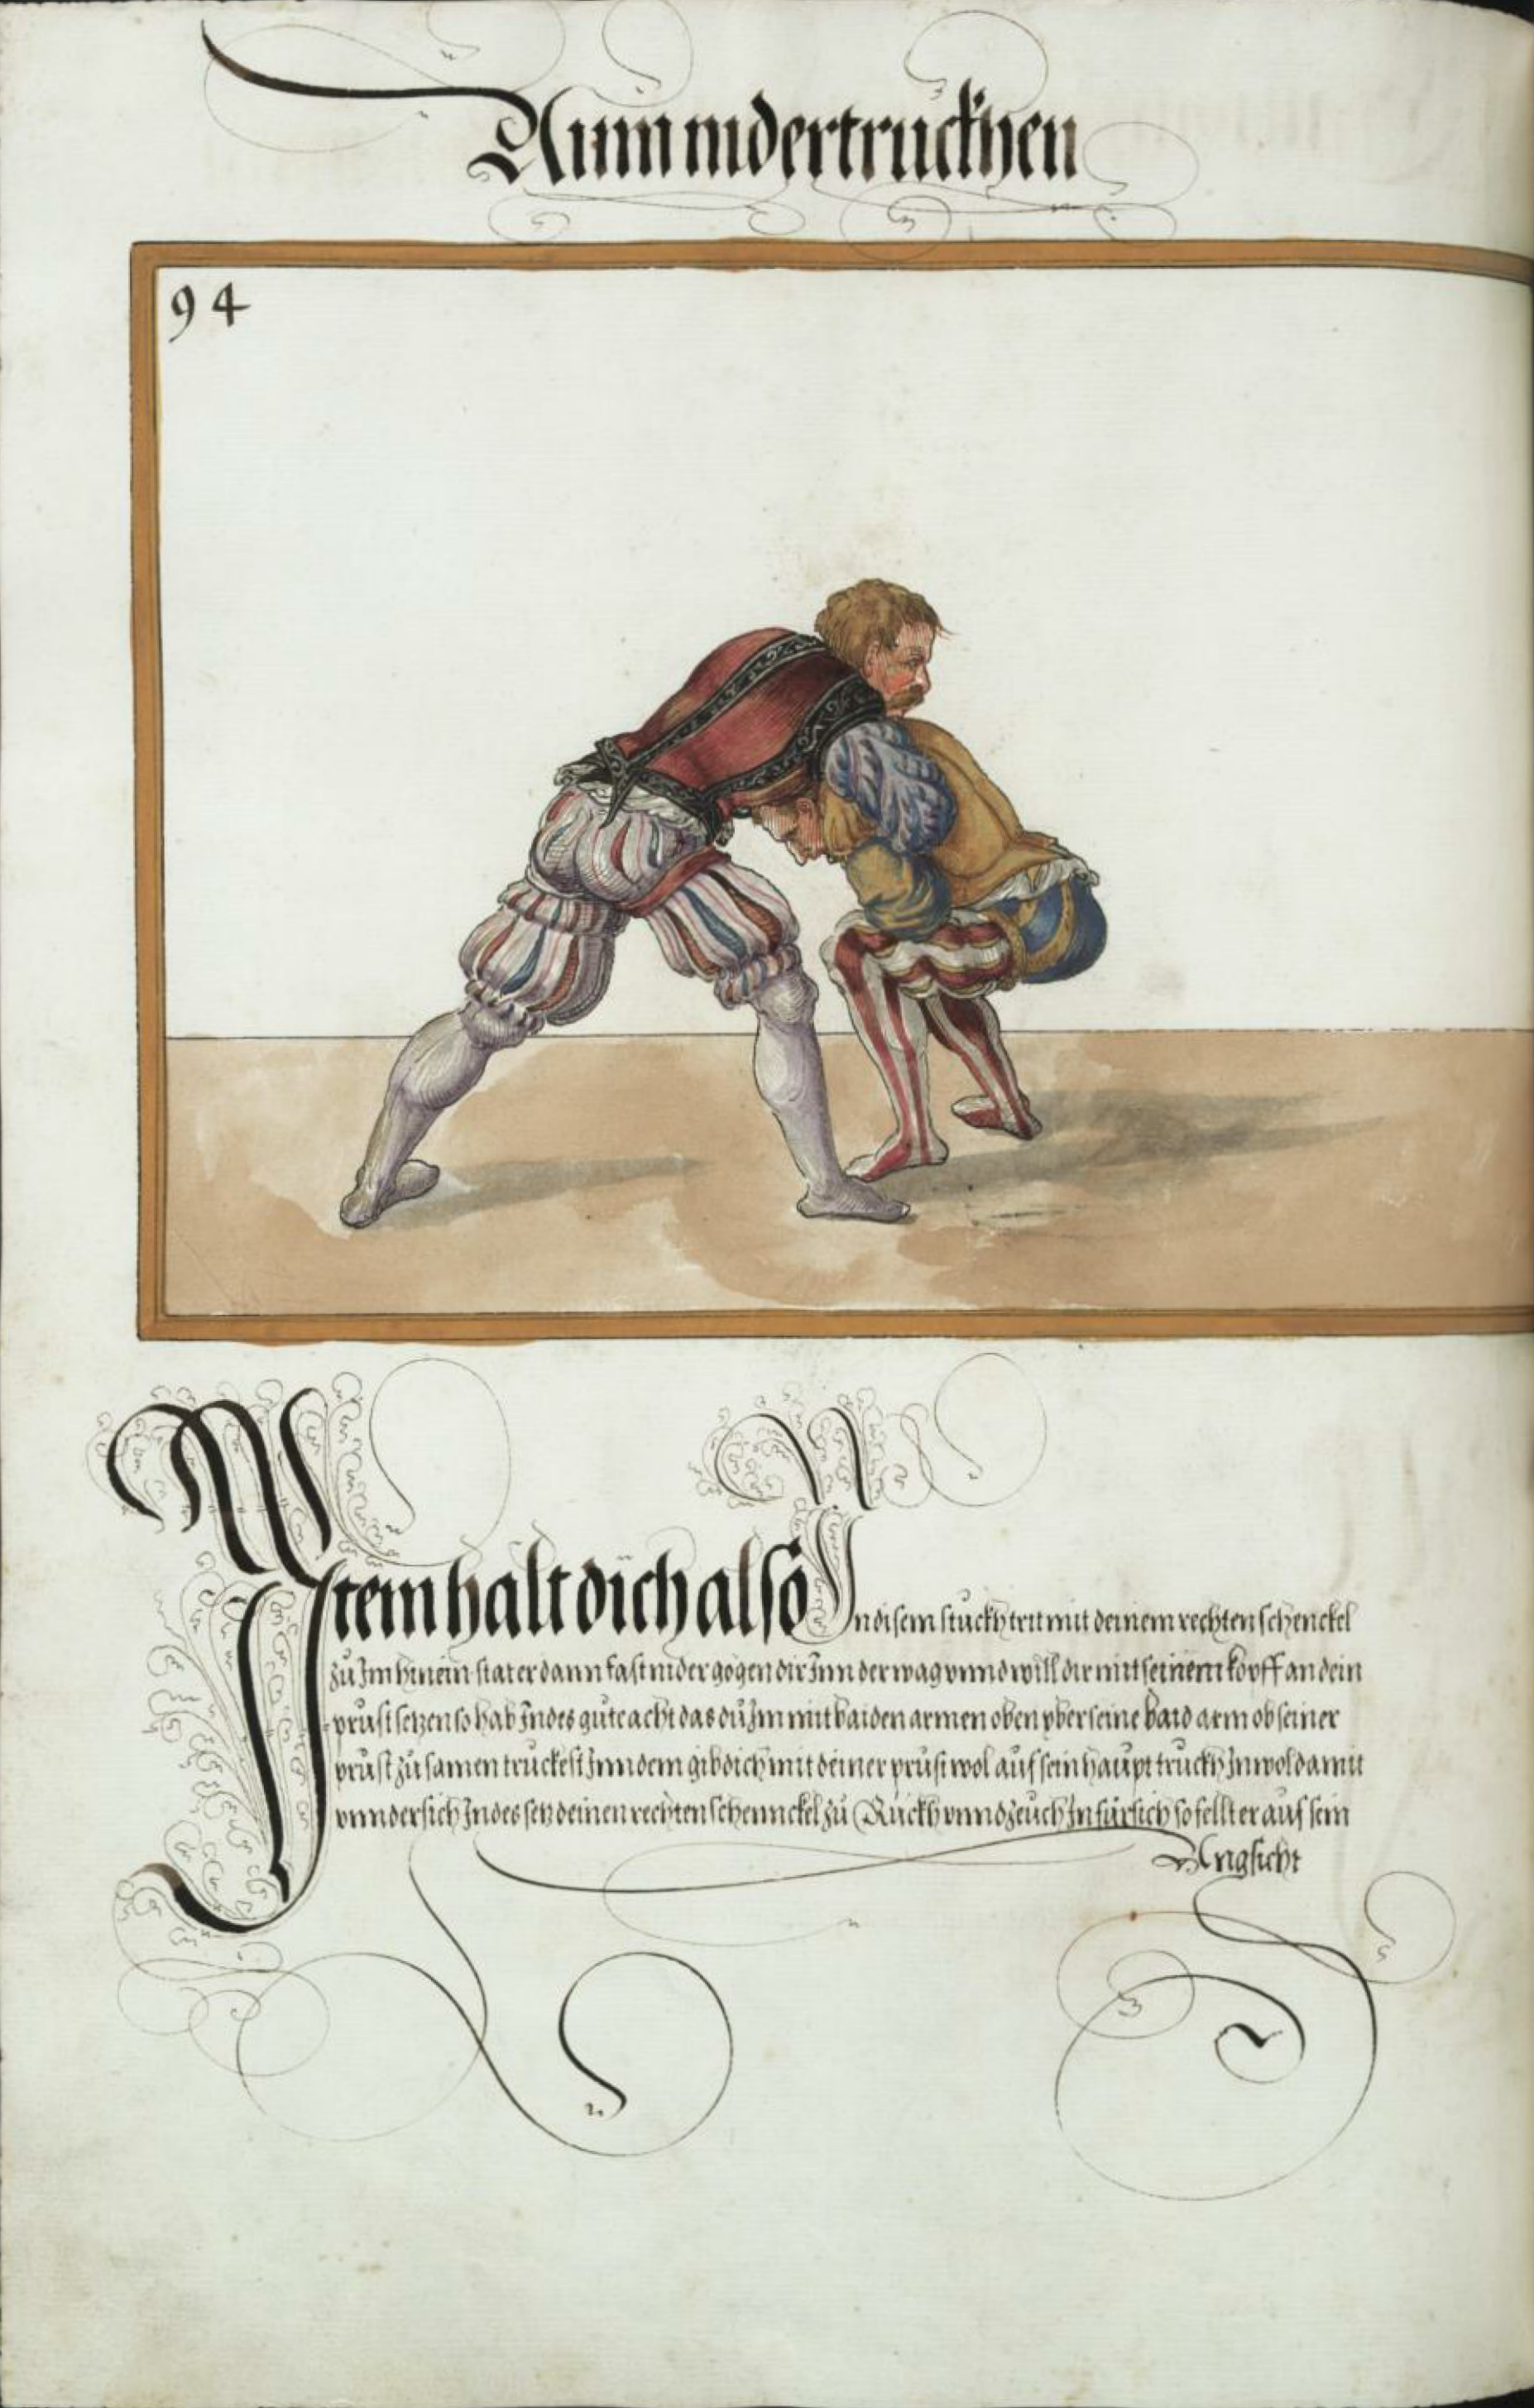 Ainn nidertruckhen
94
Item halt dich also In disem stuckh trit mit deinem rechten schenckel
zů Im hinein stat er dann fast nider gögen dir Inn der wag vnnd will dir mit seinem kopff an dein
prust setzen so hab Indes gůte acht das dů Im mit baiden armen oben vber seine baid arm ob seiner
prust zůsamen truckest Inn dem gib dich mit deiner prust wol auf sein haupt truckh In wol damit
vnndersich Indes setz deinen rechten schennckel zů Ruckh vnnd zeuch In fürsich so fellt er auf sein
Angsicht